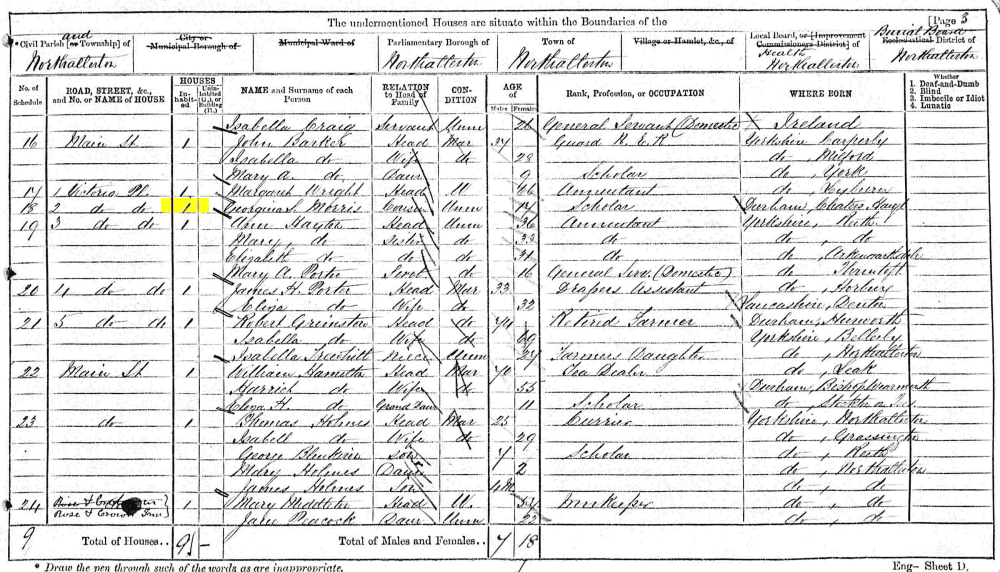 The undermentioned Houses are situate within the Boundaries of the [Page 3
*Civil Parish [or Township] of and City or Municipal Borough of Municipal Ward of Parliamentary Borough of Town of Village or Hamlet, &c., of Local Board, or [Improvement Commissioners District] of Health Burial Board Ecclesiastical District of
Northallerton Northallerton Northallerton Northallerton Northallerton
No. of Schedule ROAD, STREET, &c., and No. or NAME of HOUSE HOUSES Inhabited Uninhabited (U.), or Building (B.) NAME and Surname of each Person RELATION to Head of Family CONDITION AGE of Males Females Rank, Profession, or OCCUPATION WHERE BORN Whether 1. Deaf-and-Dumb 2. Blind 3. Imbecile or Idiot 4. Lunatic
Isabella Craig Servant Unm 26 General Servant (Domestic) Ireland
16 Main St 1 John Barker Head Mar 34 Guard R. Yorkshire Carperby
Isabella do Wife do 28 do, Milford
Mary A. do Daur 9 Scholar do, York
17 1 Victoria Pl. 1 Margaret Wright Head W 66 Annuitant do, Leyburn
18 2 do do 1 Georgina S. Morris Cousin Unm 14 Scholar Durham,
19 3 do do 1 Ann Hayton Head Unm 36 Annuitant Yorkshire, Reeth
Mary, do Sister do 33 do do, do
Elizabeth do do do 31 do do, Arkengarthdale
Mary A. Porter Servt do 16 General Serv. (Domestic) do,
20 4 do do 1 James H. Porter Head Mar 33 Drapers Assistant do, Horbury
Eliza do Wife do 32 Lancashire, Denton
21 5 do do 1 Robert Grimston Head do 74 Retired Farmer Durham, Hurworth
Isabella do Wife do 69 Yorkshire, Bellerby
Isabella Niece Unm 24 Farmers Daughter do, Northallerton
22 Main St 1 William Head Mar 70 Tea Dealer do, Leak
Harriet do Wife do 55 Durham, Bishopwearmouth
Eliza H. do Grand Daur 11 Scholar do, Stockton on Tees
23 do 1 Thomas Holmes Head Mar 25 Currier Yorkshire, Northallerton
Isabell do Wife do 29 do, Grassington
George Son 7 Scholar do, Reeth
Mary Holmes Daur 2 do, Northallerton
James Holmes Son 4 M do, do
24 Rose & Crown Inn 1 Mary Middleton Head W. 54 Innkeeper do, do
Rose & Crown Inn Jane Peacock Daur Unm 23 do, do
9 Total of Houses.. 9 - Total of Males and Females.. 7 18
* Draw the pen through such of the words as are inappropriate. Eng— Sheet D.